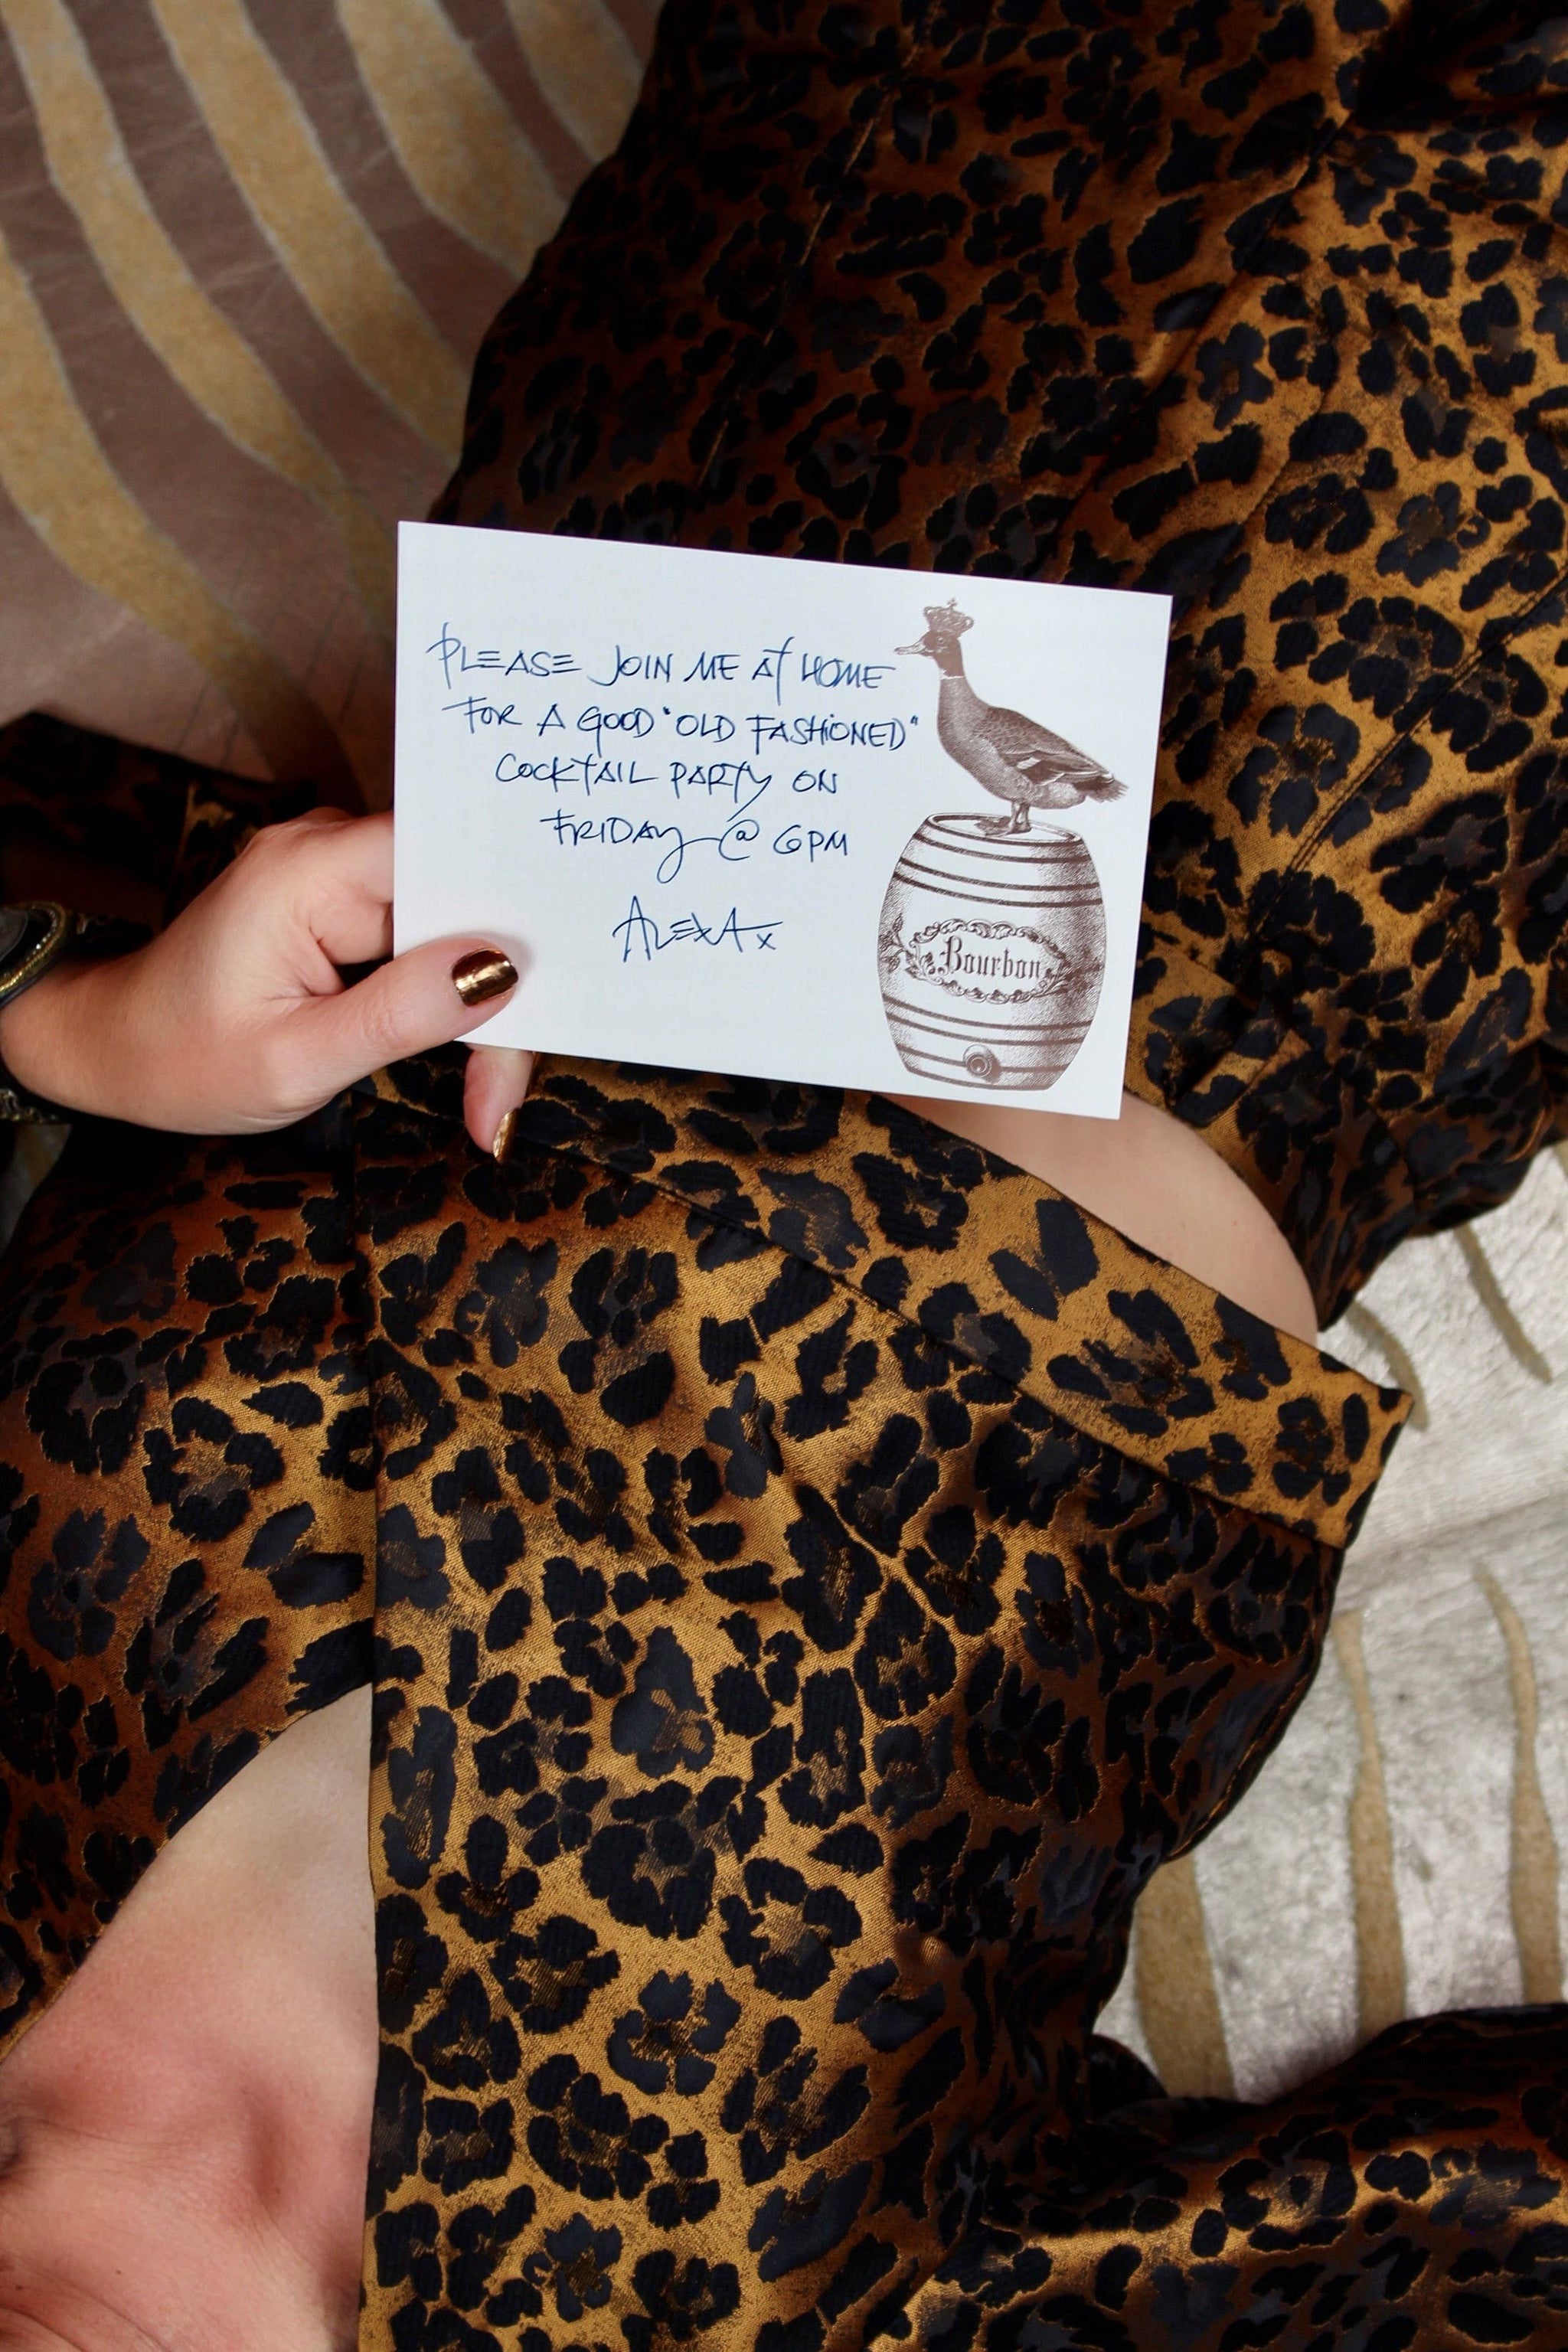 PLEASE JOIN ME AT HOME
FOR A GOOD "OLD FASHIONED"
COCKTAIL PARTY ON
FRIDAY @ 6PM
ALEXA x
Bourbon